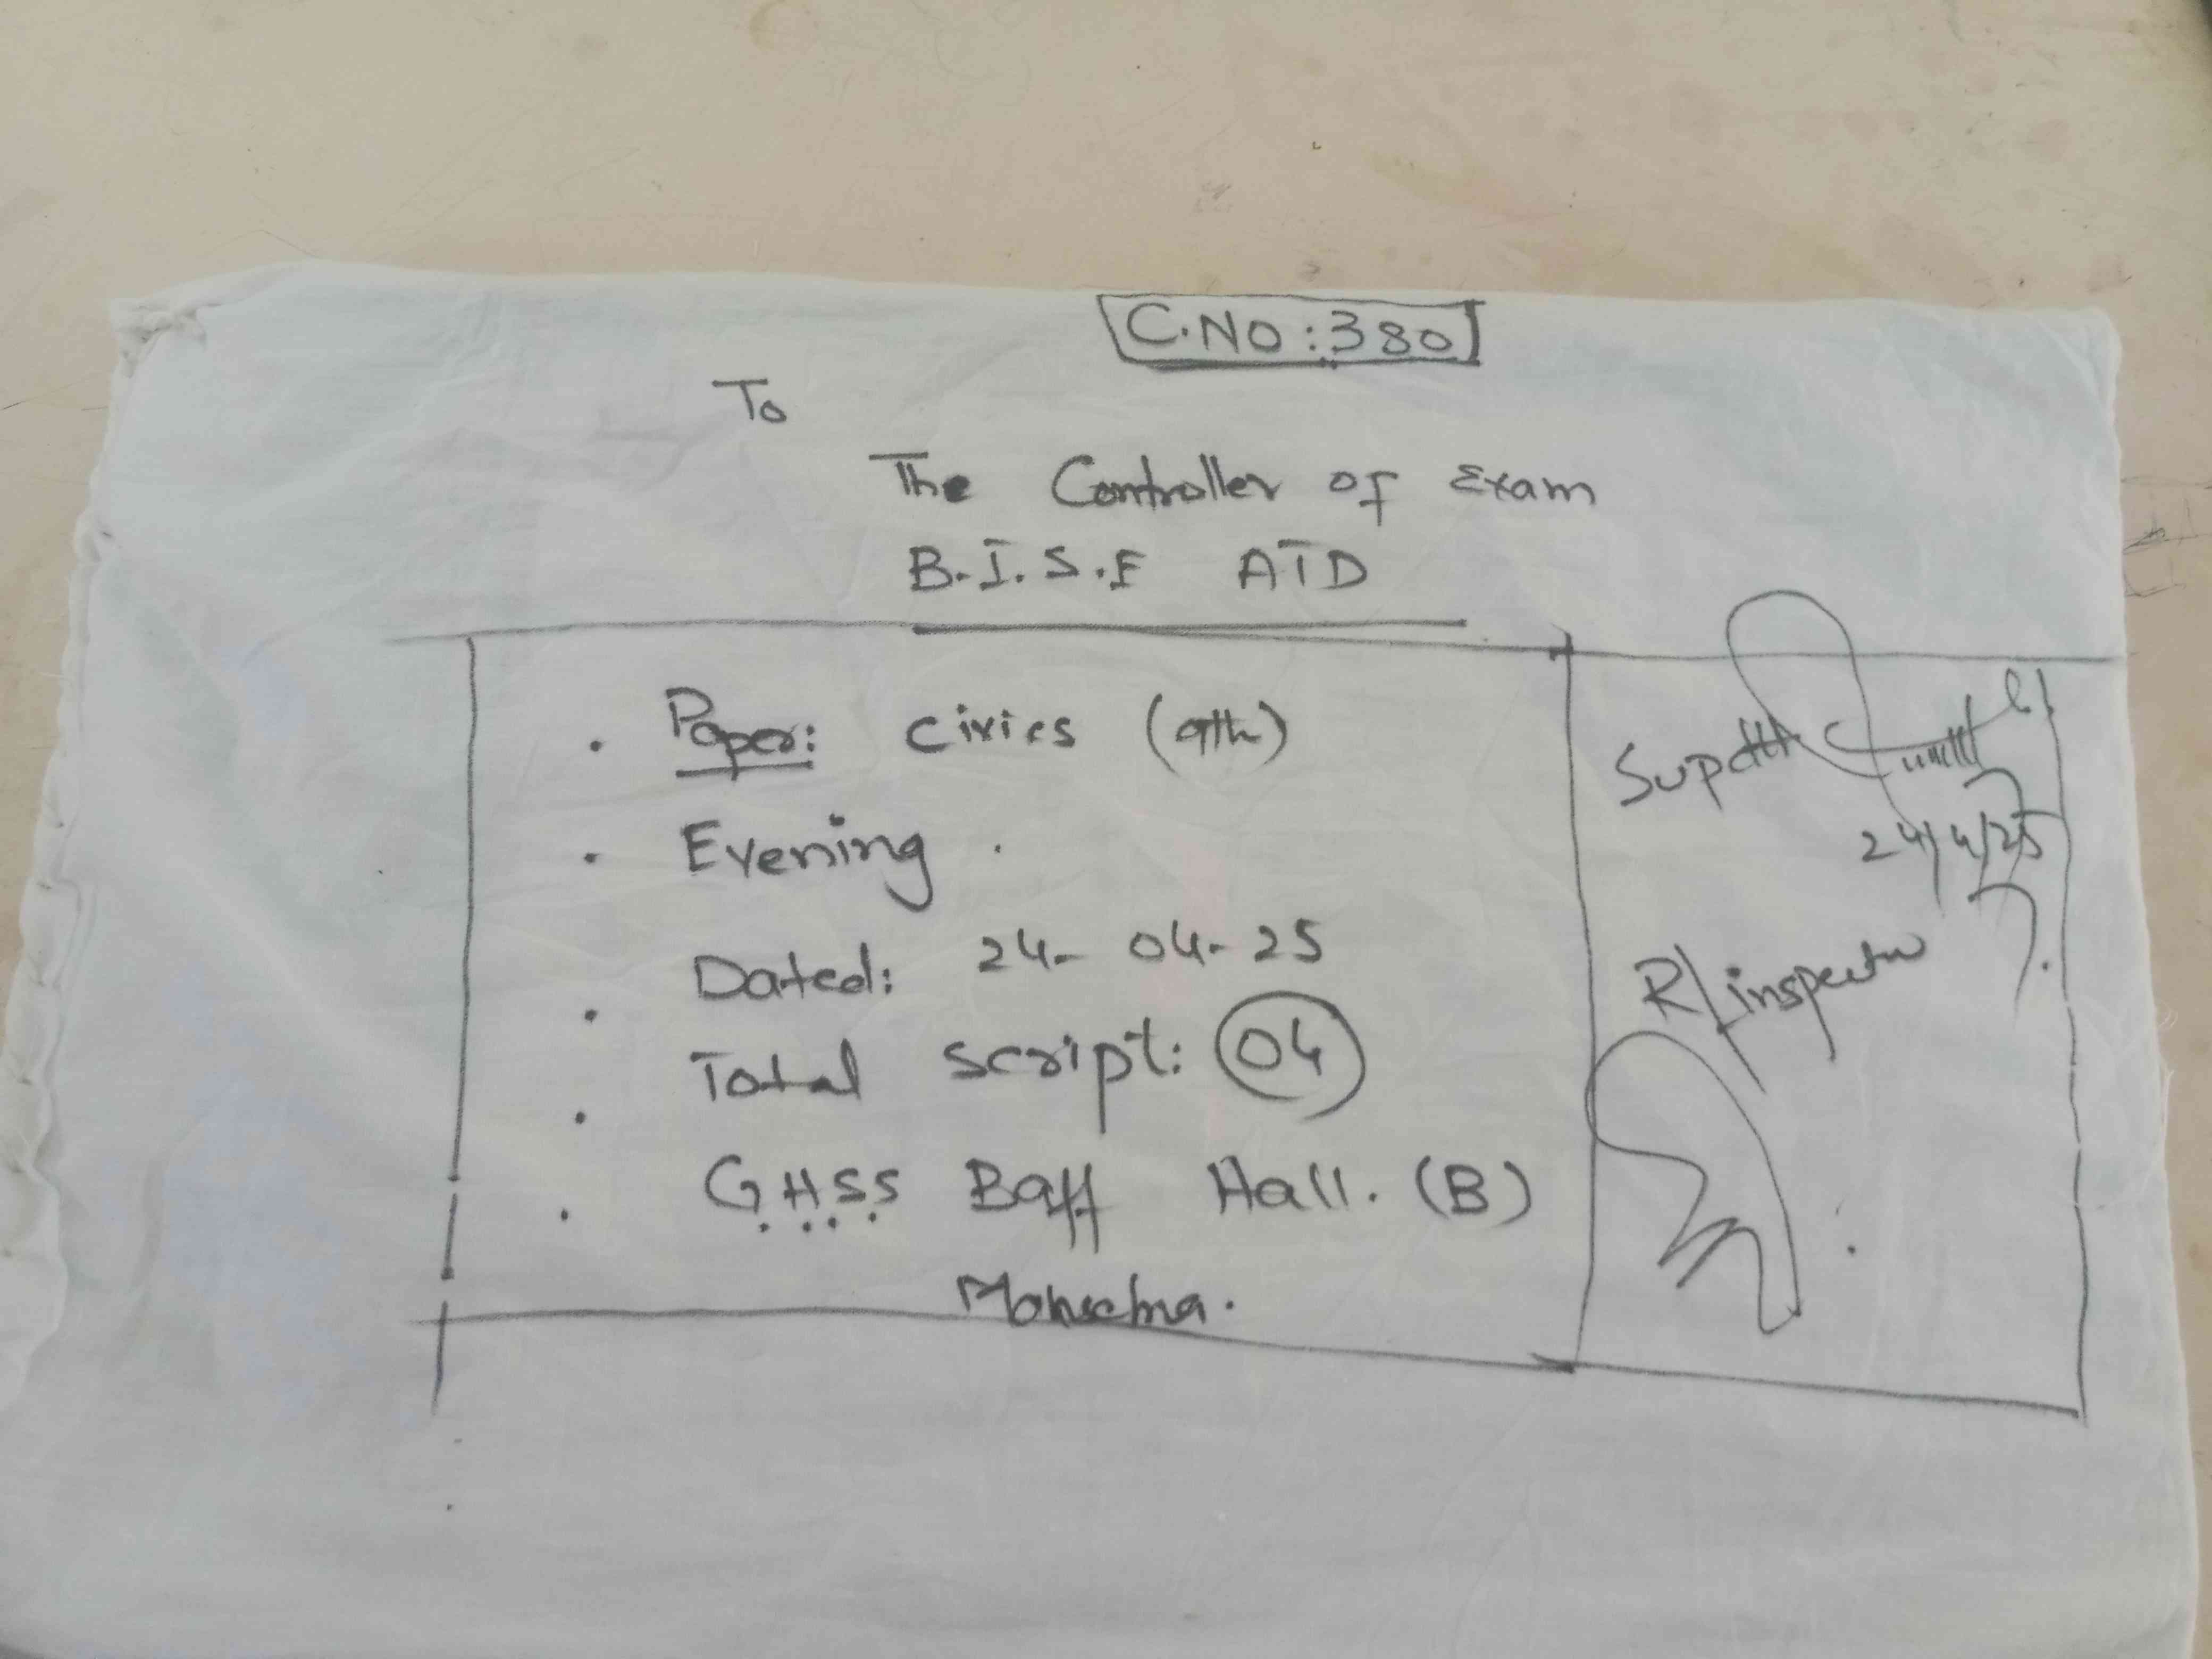 C.NO:380
To
The Controller of Exam
B.I.S.E ATD
Paper: Civics (9th)
Evening.
Dated: 24-04-25
Total script: 04
G.H.S.S Baff Hall. (B)
Supdtt
24/4/25
R/inspector